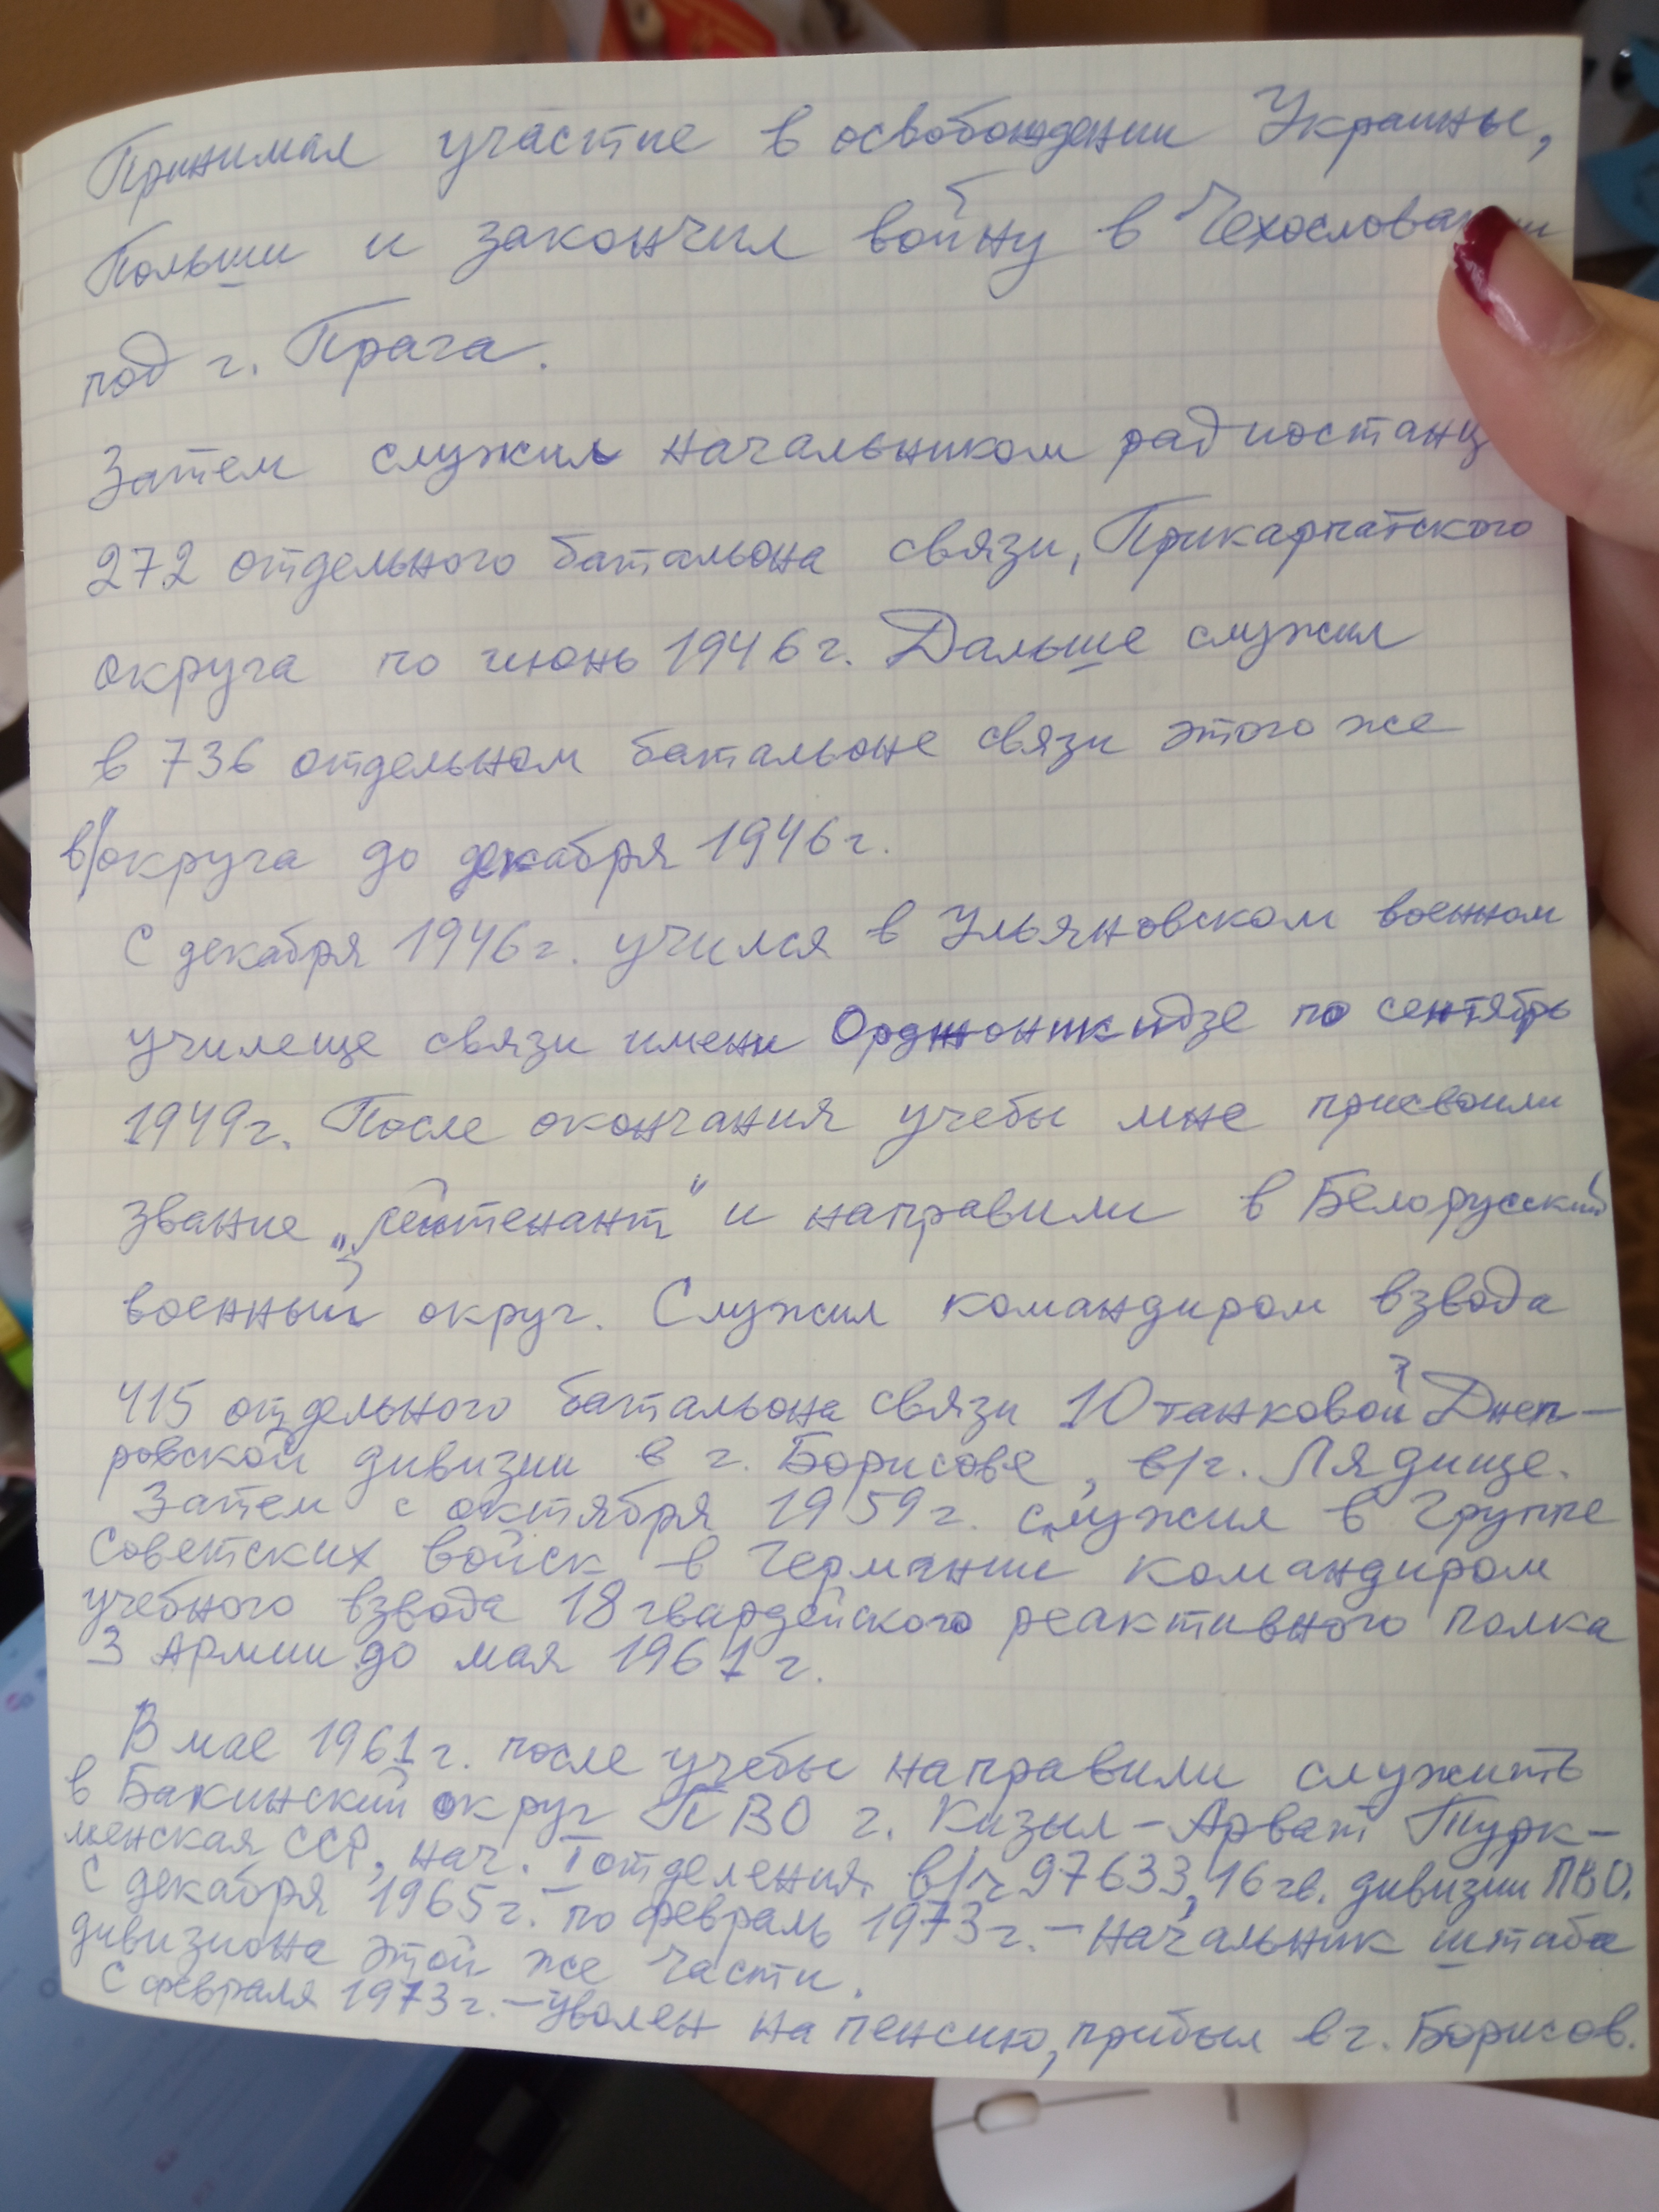 Принимал участие в освобождении Украины,
Польши и закончил войну в Чехословакии
под г. Прага.
Затем служил начальником радиостанц
272 отдельного батальона связи, Прикарпатского
округа по июнь 1946 г. Дальше служил
в 736 отдельном батальоне связи этого же
в/округа до декабря 1946 г.
С декабря 1946 г. учился в Ульяновском военном
училище связи имени Орджоникидзе по сентябрь
1949 г. После окончания учебы мне присвоили
звание „лейтенант" и направили в Белорусский
военный округ. Служил командиром взвода
415 отдельного батальона связи 10 танковой Днеп-
ровской дивизии в г. Борисове, в/г. Лядище.
Затем с октября 1959 г. служил в Группе
Советских войск в Германии командиром
учебного взвода 18 гвардейского реактивного полка
3 Армии до мая 1961 г.
В мае 1961 г. после учебы направили служить
в Бакинский округ ПВО г. Кизыл-Арват Турк-
менская ССР, нач. I отделения в/ч 97633, 16 гв. дивизии ПВО.
С декабря 1965 г. по февраль 1973 г. - начальник штаба
дивизиона этой же части.
С февраля 1973 г. - уволен на пенсию, прибыл в г. Борисов.